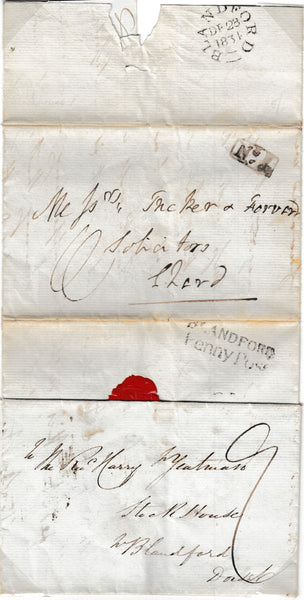 BLANDFORD
DE 23
1831
No. 4
Messrs. Tucker & Forward
Solicitors
Chard
BLANDFORD
Penny Post
The Revd. Harry F. Yeatman
Stock House
Blandford
Dorset
7